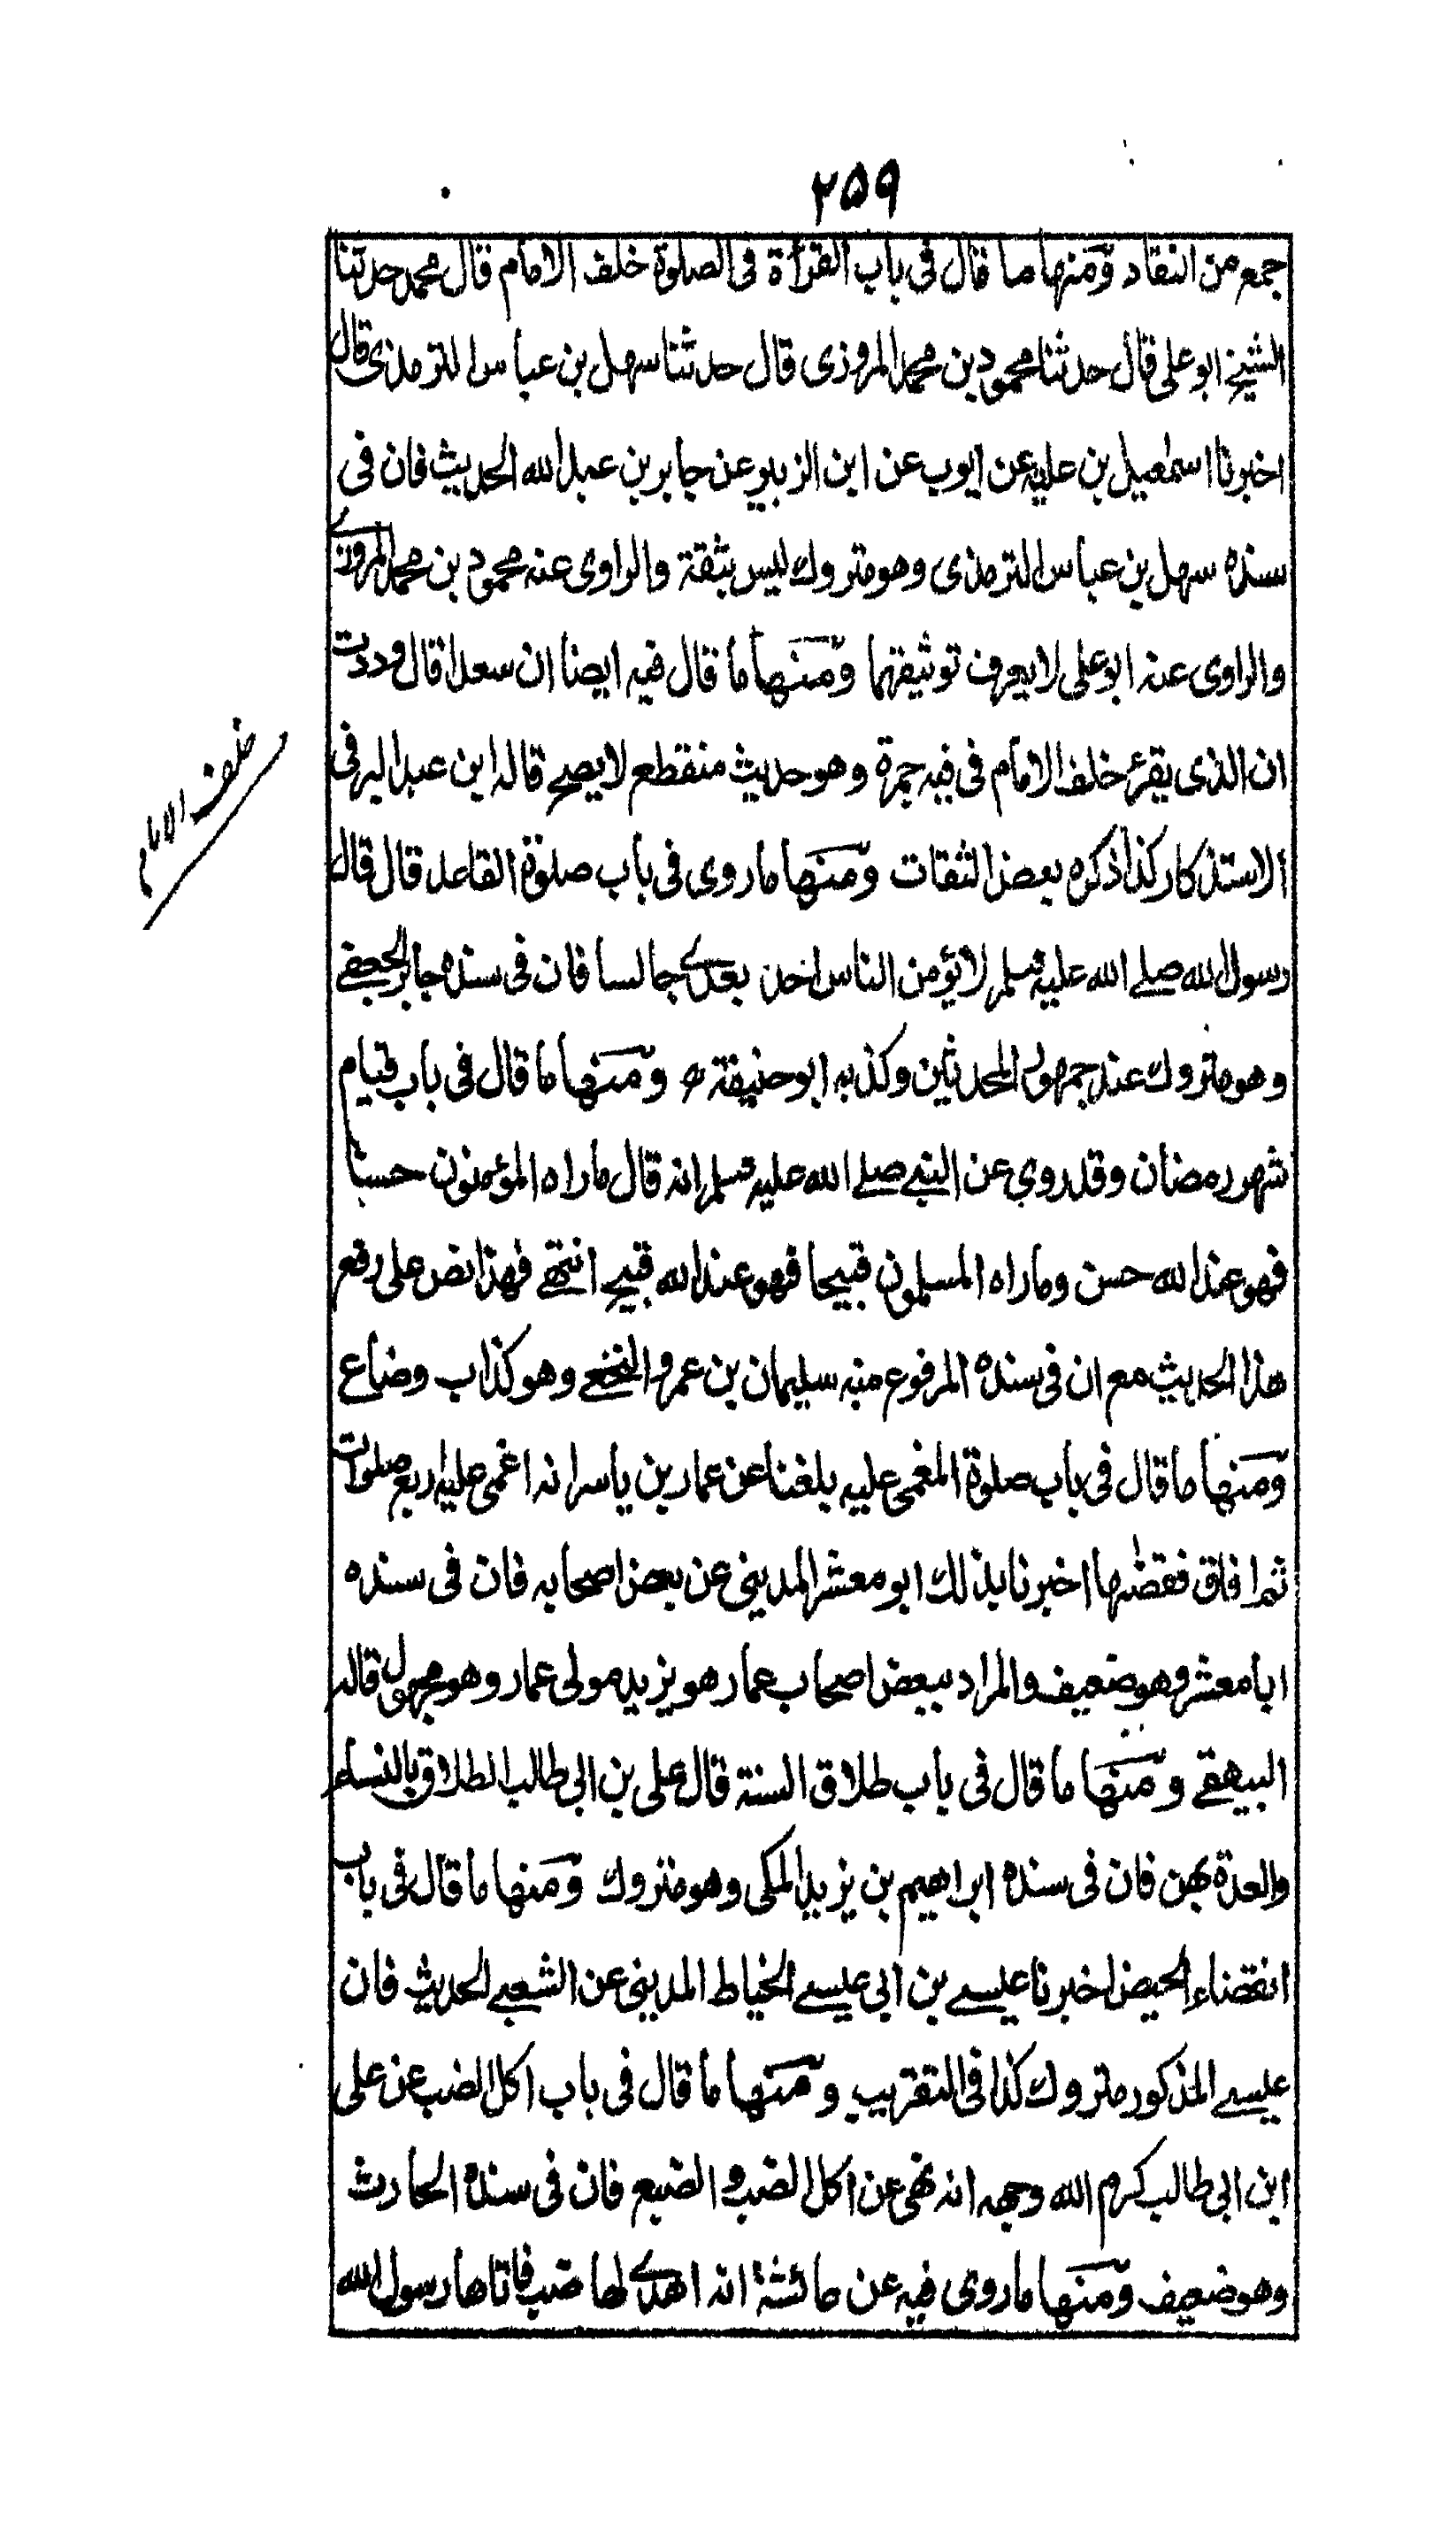 ۲۵۹
جمع من النقاد ومنها ما قال فی باب القرأة فی الصلوة خلف الامام قال محمد حدثنا
الشیخ ابو علی قال حدثنا محمود بن محمد المروزی قال حدثنا سهل بن عباس الترمذی قال
اخبرنا اسمعیل بن علیه عن ایوب عن ابن الزبیر عن جابر بن عبد الله الحدیث فان فی
سنده سهل بن عباس الترمذی وهو متروك لیس بثقة والراوی عنه محمود بن محمد المروزے
والراوی عنه ابو علی لا یعرف توثیقهما ومنها ما قال فیه ایضا ان سعدا قال وددت
ان الذی یقرء خلف الامام فی فیه جمرة وهو حدیث منقطع لا یصح قاله ابن عبد البر فی
الاستذکار کذا ذکره بعض الثقات ومنها ما روی فی باب صلوة القاعد قال قال
رسول الله صلے الله علیه وسلم لا یؤمن الناس احد بعدے جالسا فان فی سنده جابر الجعفے
وهو متروك عند جمهور المحدثین وکذبه ابو حنیفة رح ومنها ما قال فی باب قیام
شهر رمضان وقد روی عن النبے صلے الله علیه وسلم انه قال ما راه المؤمنون حسنا
فهو عند الله حسن وما راه المسلمون قبیحا فهو عند الله قبیح انتهے فهذا نص علی رفع
هذا الحدیث مع ان فی سنده المرفوع منه سلیمان بن عمرو النخعے وهو کذاب وضاع
ومنها ما قال فی باب صلوة المغمی علیه بلغنا عن عمار بن یاسر انه اغمی علیه اربع صلوات
ثم افاق فقضها اخبرنا بذلك ابو معشر المدینی عن بعض اصحابه فان فی سنده
ابا معشر وهو ضعیف والمراد ببعض اصحاب عمار هو یزید مولی عمار وهو مجهول قاله
البیهقے ومنها ما قال فی باب طلاق السنة قال علی بن ابی طالب الطلاق بالنساء
والعدة بهن فان فی سنده ابراهیم بن یزید المکی وهو متروك ومنها ما قال فی باب
انقضاء الحیض اخبرنا عیسے بن ابی عیسے الخیاط المدینی عن الشعبے الحدیث فان
عیسے المذکور متروك کذا فی التقریب ومنها ما قال فی باب اکل الضب عن علی
ابن ابی طالب کرم الله وجهه انه نهی عن اکل الضب و الضبع فان فی سنده الحارث
وهو ضعیف ومنها ما روی فیه عن عائشة انه اهدے لها ضب فاتاها رسول الله
خلف الامام